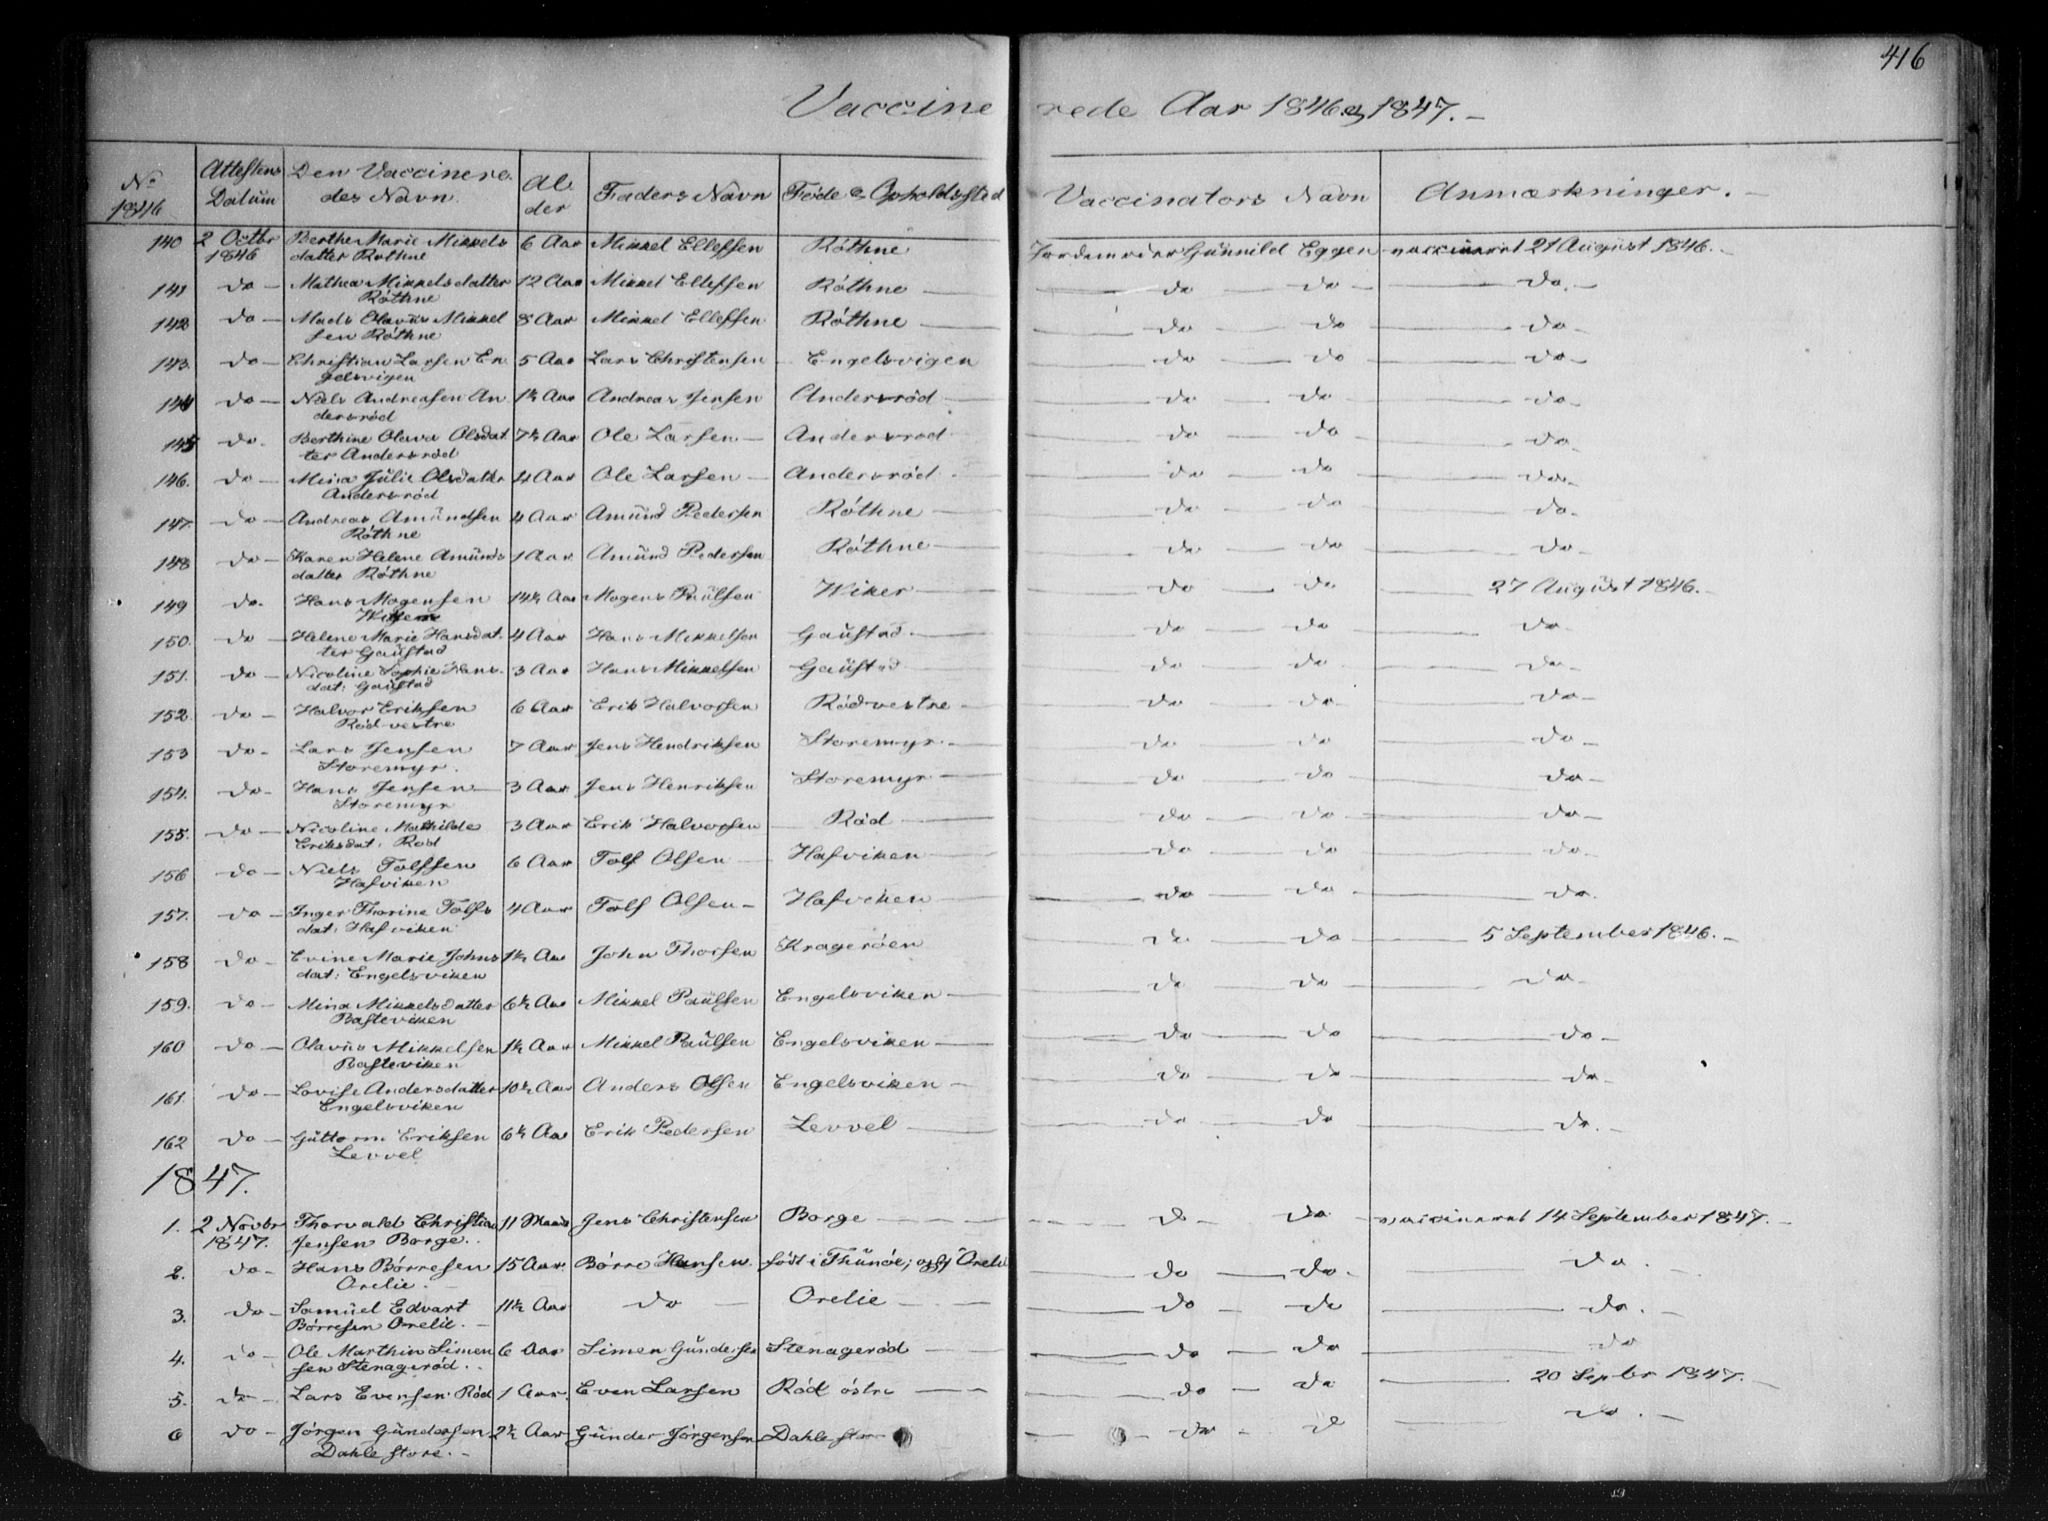 416
Vaccinerede Aar 1846 & 1847.
No 1846 | Attestens Datum | Den Vaccinere des Navn. | Al der | Faders Navn | Føde & Opholdssted | Vaccinators Navn | Anmærkninger.
140 2 Octbr Berthe Marie Mikkels 6 Aar Mikkel Ellefsen Röthne Jordemoder Gunnild Eggen vaccineret 21 August 1846.
1846 datter Röthne
141 do Mathea Mikkelsdatter 12 Aar Mikkel Ellefsen Röthne do do do.
Röthne
142 do Mads Olavus Mikkel 8 Aar Mikkel Ellefsen Röthne do do do
sen Röthne
143. do Christian Larsen En 5 Aar Lars Christensen Engelsvigen do do do
gelsvigen
144 do Niels Andreasen An 1½ Aar Andreas Jensen Andersröd do do do
dersröd
145 do. Berthine Olava Olsdat 7½ Aar Ole Larsen Andersröd do do do
ter Andersröd
146. do Mina Julie Olsdatter 4 Aar Ole Larsen Andersröd do do do
Andersröd
147. do Andreas Amundsen 4 Aar Amund Pedersen Röthne do do do
Röthne
148 do Karen Helene Amunds 1 Aar Amund Pedersen Röthne do do do
datter Röthne
149 do. Hans Mogensen 14½ Aar Mogens Paulsen Wiker do do 27 August 1846.
150. do Helene Marie Hansdat 4 Aar Hans Mikkelsen Gaustad do do do
ter Gaustad
151. do Nicoline Sophie Hans 3 Aar Hans Mikkelsen Gaustad do do do
dat: Gaustad
152 do Halvor Eriksen 6 Aar Erik Halvorsen Röd vestre do do do
Röd vestre
153 do Lars Jensen 7 Aar Jens Hendriksen Storemyr do do do
Storemyr.
154. do Hans Jensen 3 Aar Jens Henriksen Storemyr do do do
Storemyr
155. do Nicoline Mathilde 3 Aar Erik Halvorsen Röd do do do
Eriksdat: Röd
156 do Niels Tolfsen 6 Aar Tolf Olsen Hafviken do do do
Hafviken
157. do Inger Thorine Tolfs 4 Aar Tolf Olsen Hafviken do do do.
dat: Hafviken
158 do Evine Marie Johns 1½ Aar John Thorsen Kragerøen do do 5 September 1846.
dat: Engelsviken
159. do Mina Mikkelsdatter 6½ Aar Mikkel Paulsen Engelsviken do do do
Basteviken
160 do Olavus Mikkelsen 1½ Aar Mikkel Paulsen Engelsviken do do do
Basteviken
161. do Lovise Andersdatter 10½ Aar Anders Olsen Engelsviken do do do
Engelsviken
162 do Guttorm Eriksen 6½ Aar Erik Pedersen Levvel do do do.
Levvel
1847.
1. 2 Novbr Thorvald Christian 11 Maan Jens Christensen Borge do do vaccineret 14 September 1847.
1847. Jensen Borge.
2. do Hans Börresen 15 Aar Börre Hansen født i Thunöe; Orelie do do do.
Orelie.
3. do Samuel Edvart 11½ Aar do Orelie do do do.
Börresen Orelie.
4. do Ole Marthin Simen 6 Aar Simen Gundersen Stenageröd do do do
sen Stenageröd.
5. do Lars Evensen Röd 1 Aar. Even Larsen Röd östre do do 20 Septbr 1847.
6 do Jörgen Gundersen 2½ Aar Gunder Jörgensen Dahle store do do do.
Dahle store.